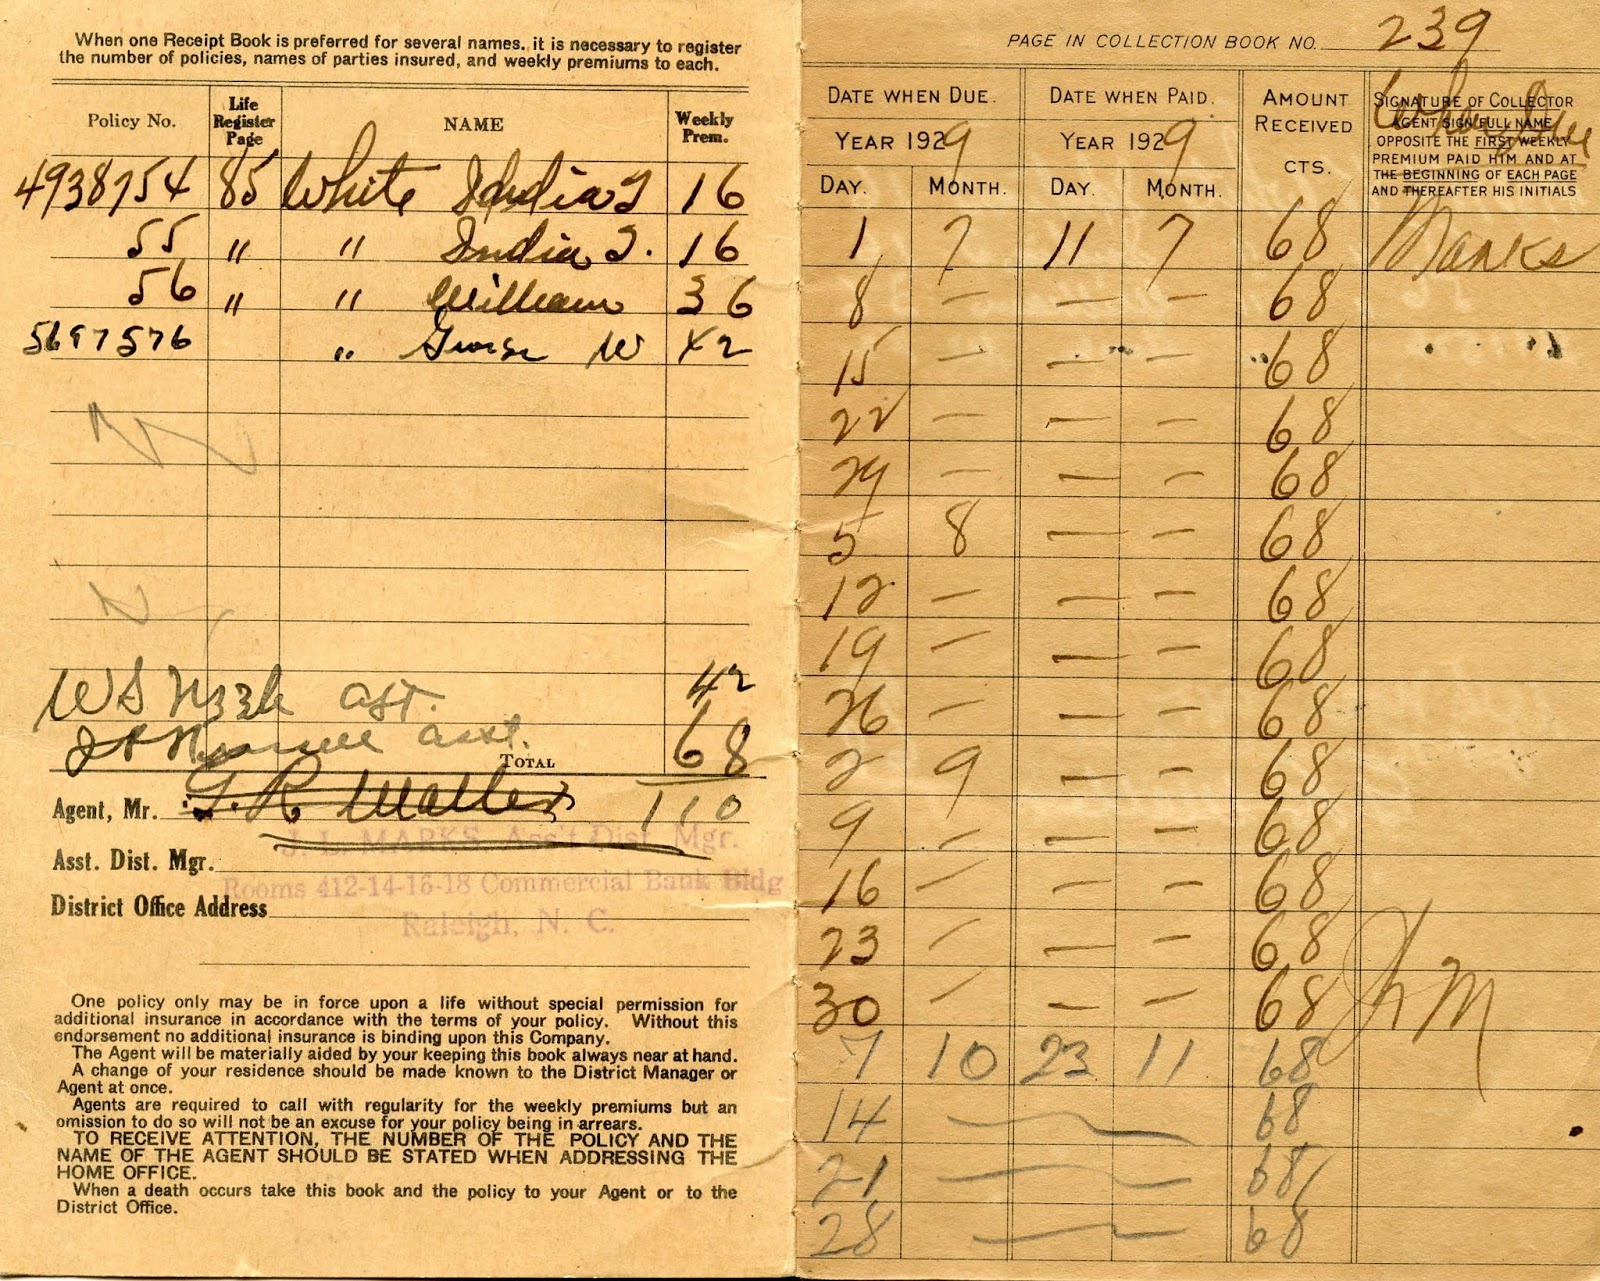 When one Receipt Book is preferred for several names, it is necessary to register
the number of policies, names of parties insured, and weekly premiums to each.
Policy No. Life Register Page NAME Weekly Prem.
4938754 85 White India T 16
55 " " India T. 16
56 " " William 36
5697576 " George W 42
42
asst. 68
TOTAL
110
Agent, Mr. J. R. Walters
J. L. MARKS, Ass't Dist. Mgr.
Asst. Dist. Mgr.
Rooms 412-14-16-18 Commercial Bank Bldg
District Office Address
Raleigh, N. C.
One policy only may be in force upon a life without special permission for
additional insurance in accordance with the terms of your policy. Without this
endorsement no additional insurance is binding upon this Company.
The Agent will be materially aided by your keeping this book always near at hand.
A change of your residence should be made known to the District Manager or
Agent at once.
Agents are required to call with regularity for the weekly premiums but an
omission to do so will not be an excuse for your policy being in arrears.
TO RECEIVE ATTENTION, THE NUMBER OF THE POLICY AND THE
NAME OF THE AGENT SHOULD BE STATED WHEN ADDRESSING THE
HOME OFFICE.
When a death occurs take this book and the policy to your Agent or to the
District Office.
PAGE IN COLLECTION BOOK NO. 239
DATE WHEN DUE. DATE WHEN PAID. AMOUNT RECEIVED CTS.
YEAR 1929 YEAR 1929
DAY. MONTH. DAY. MONTH.
SIGNATURE OF COLLECTOR
AGENT SIGN FULL NAME
OPPOSITE THE FIRST WEEKLY
PREMIUM PAID HIM AND AT
THE BEGINNING OF EACH PAGE
AND THEREAFTER HIS INITIALS
1 7 11 7 68 Marks
8 — — — 68
15 — — — 68
22 — — — 68
29 — — — 68
5 8 — — 68
12 — — — 68
19 — — — 68
26 — — — 68
2 9 — — 68
9 — — — 68
16 — — — 68
23 — — — 68
30 — — — 68
7 10 23 11 68
14 — — 68
21 — — 68
28 — — 68